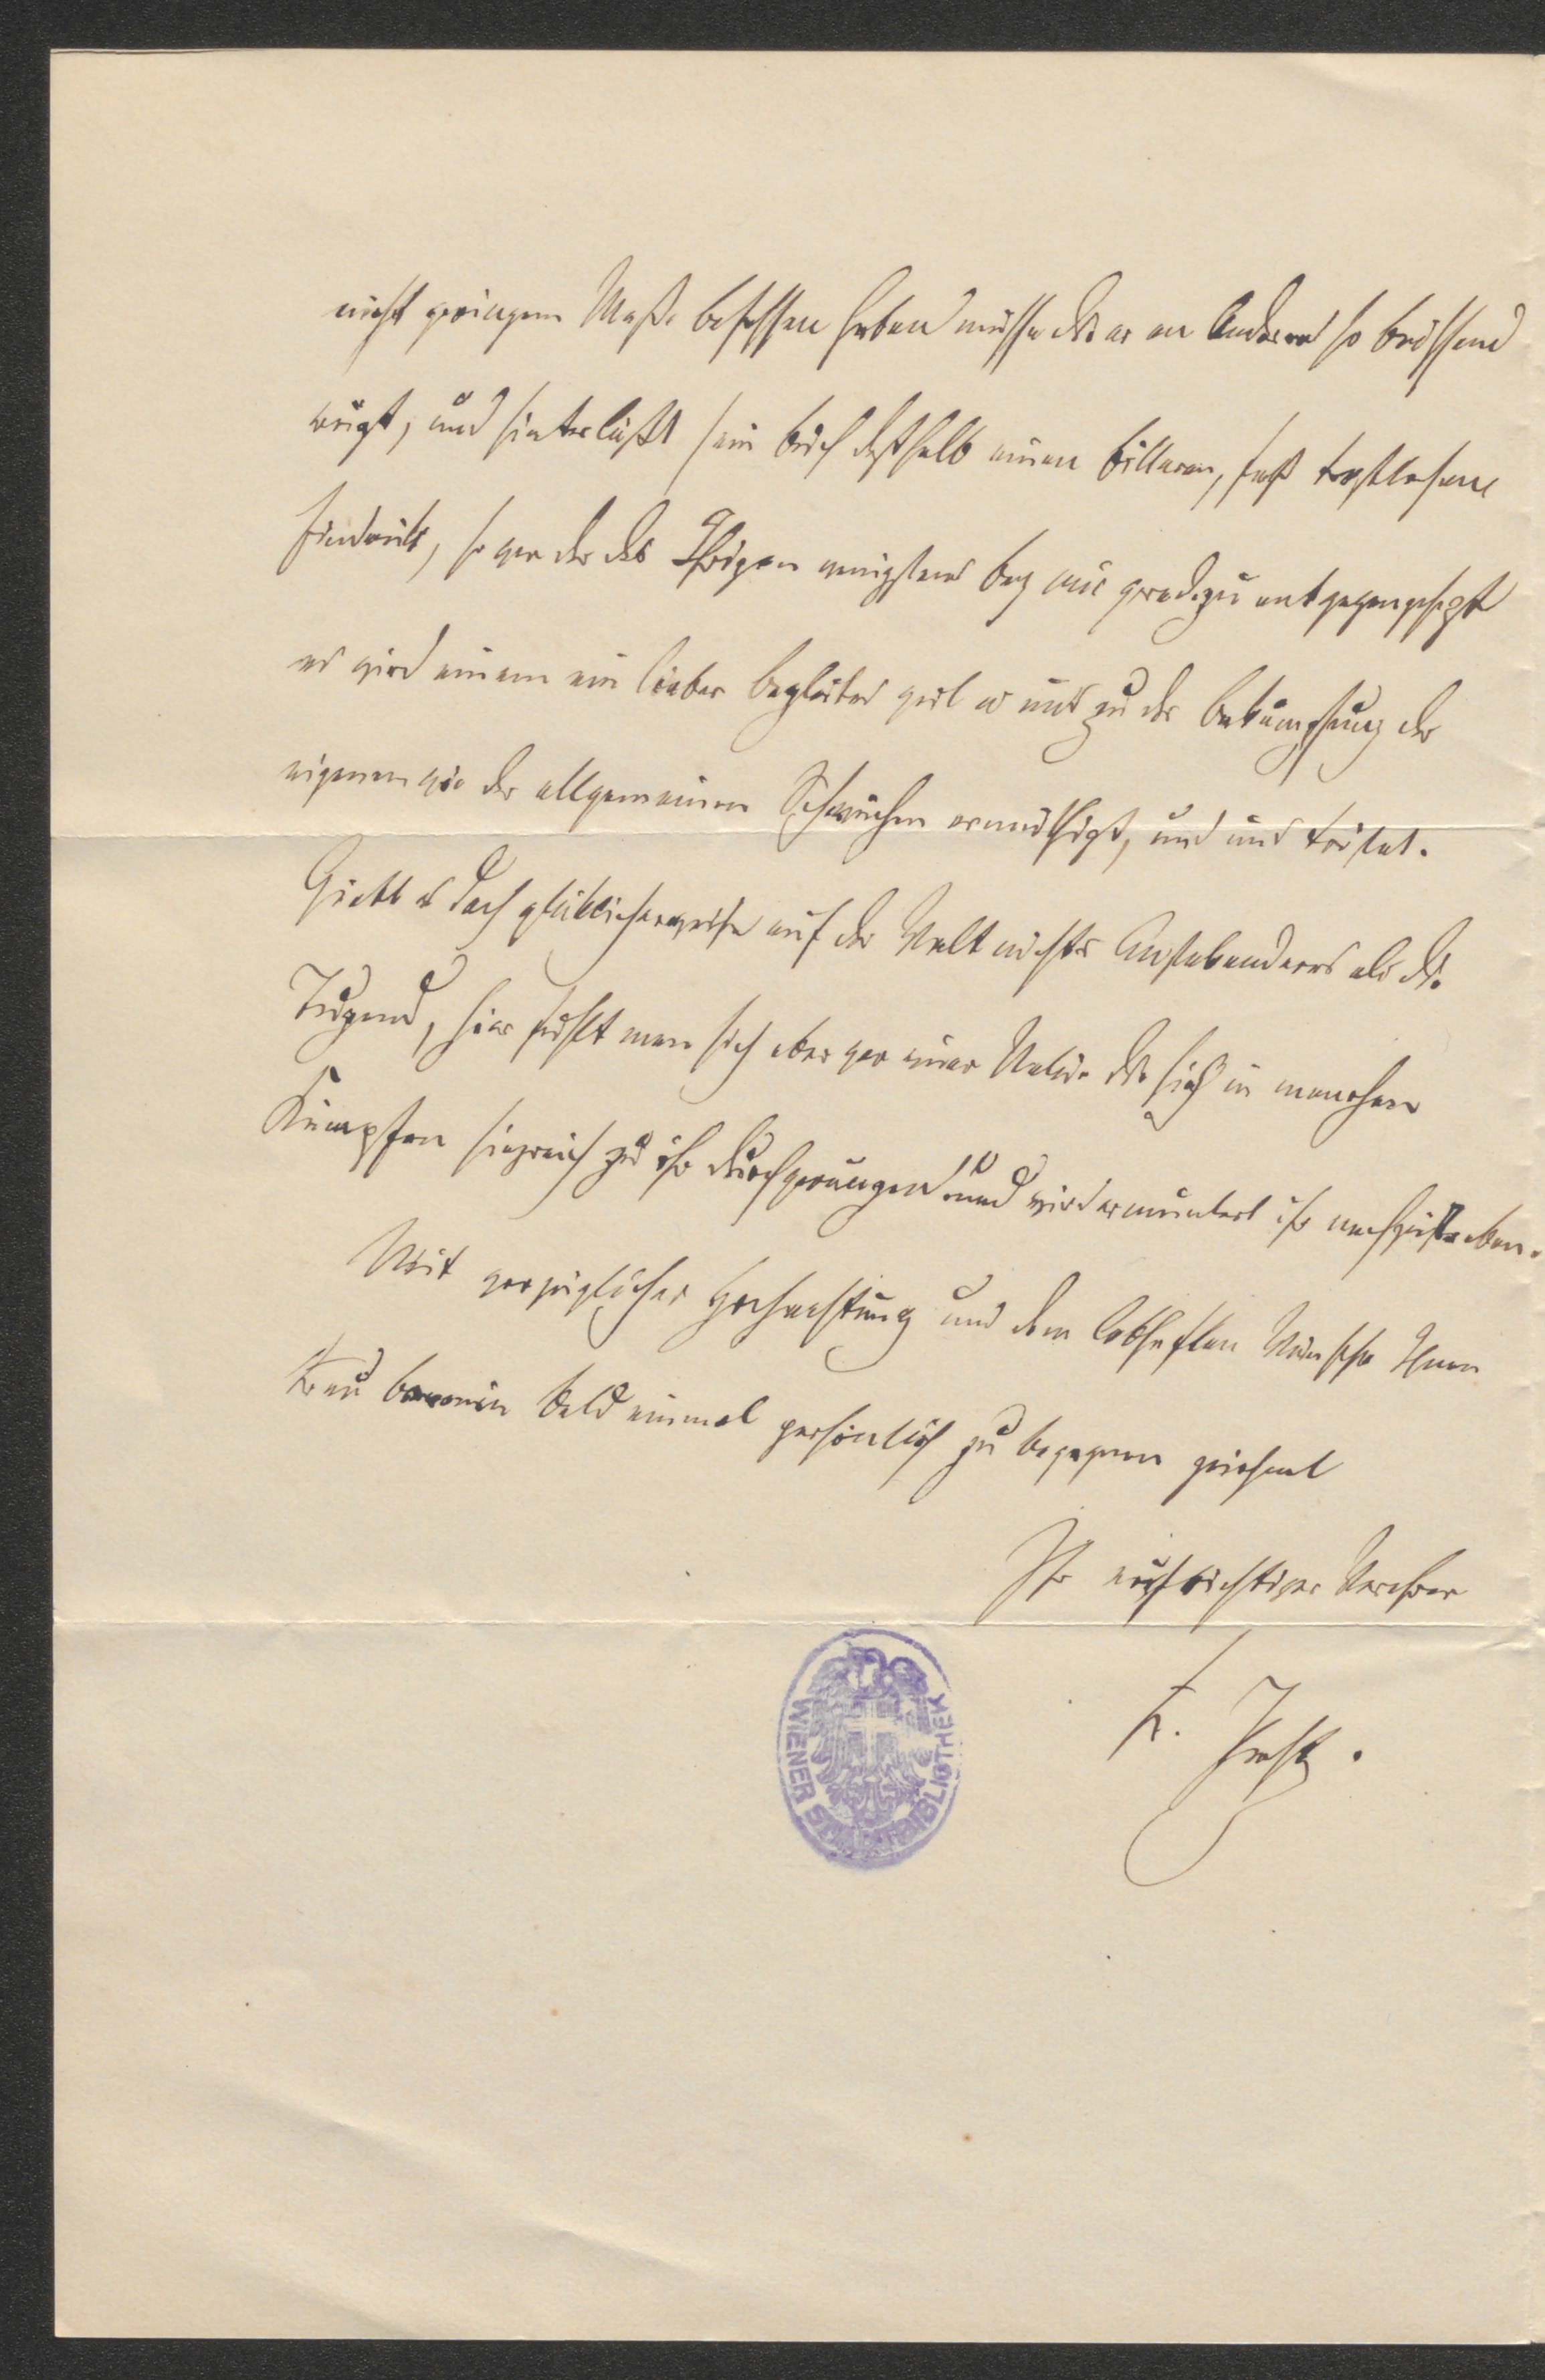 nicht geringem Maße besessen haben müsse die er an Anderen so beissend
rügt, und hinterläßt sein Buch deßhalb einen bitteren, fast trostlosen
Eindruck, so gar der des Ihrigen wenigstens bey mir geradezu entgegengesetzt
es wird einem ein lieber Begleiter weil es uns zu der Bekämpfung der
eigenen wie der allgemeinen Schwächen ermuthigt, und uns tröstet.
Giebt es doch glücklicherweise auf der Welt nichts Ansteckenderes als die
Tugend, hier fühlt man sich aber vor einer Natur die sich in manchen
Kämpfen siegreich zu ihr durchgerungen und wird ermuntert ihr nachzustreben.
Mit vorzüglicher Hochachtung und dem lebhaften Wunsche Ihnen
Frau Baronin bald einmal persönlich zu begegnen zeichnet
Ihr aufrichtiger Verehrer
F.
WIENER STADTBIBLIOTHEK